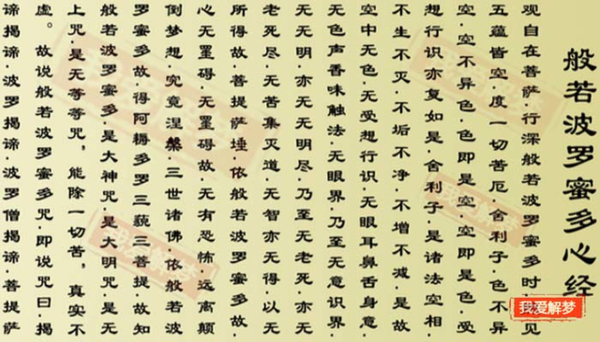 般若波罗蜜多心经
观自在菩萨·行深般若波罗蜜多时·见
五蕴皆空·度一切苦厄·舍利子·色不异
空·空不异色·色即是空·空即是色·受
想行识亦复如是·舍利子·是诸法空相·
不生不灭·不垢不净·不增不减·是故
空中无色·无受想行识·无眼耳鼻舌身意·
无色声香味触法·无眼界·乃至无意识界·
无无明·亦无无明尽·乃至无老死·亦无
老死尽·无苦集灭道·无智亦无得·以无
所得故·菩提萨埵·依般若波罗蜜多故·
心无罣碍·无罣碍故·无有恐怖·远离颠
倒梦想·究竟涅槃·三世诸佛·依般若波
罗蜜多故·得阿耨多罗三藐三菩提·故知
般若波罗蜜多·是大神咒·是大明咒·是无
上咒·是无等等咒，能除一切苦，真实不
虚。故说般若波罗蜜多咒·即说咒曰·揭
谛揭谛·波罗揭谛·波罗僧揭谛·菩提萨
我爱解梦